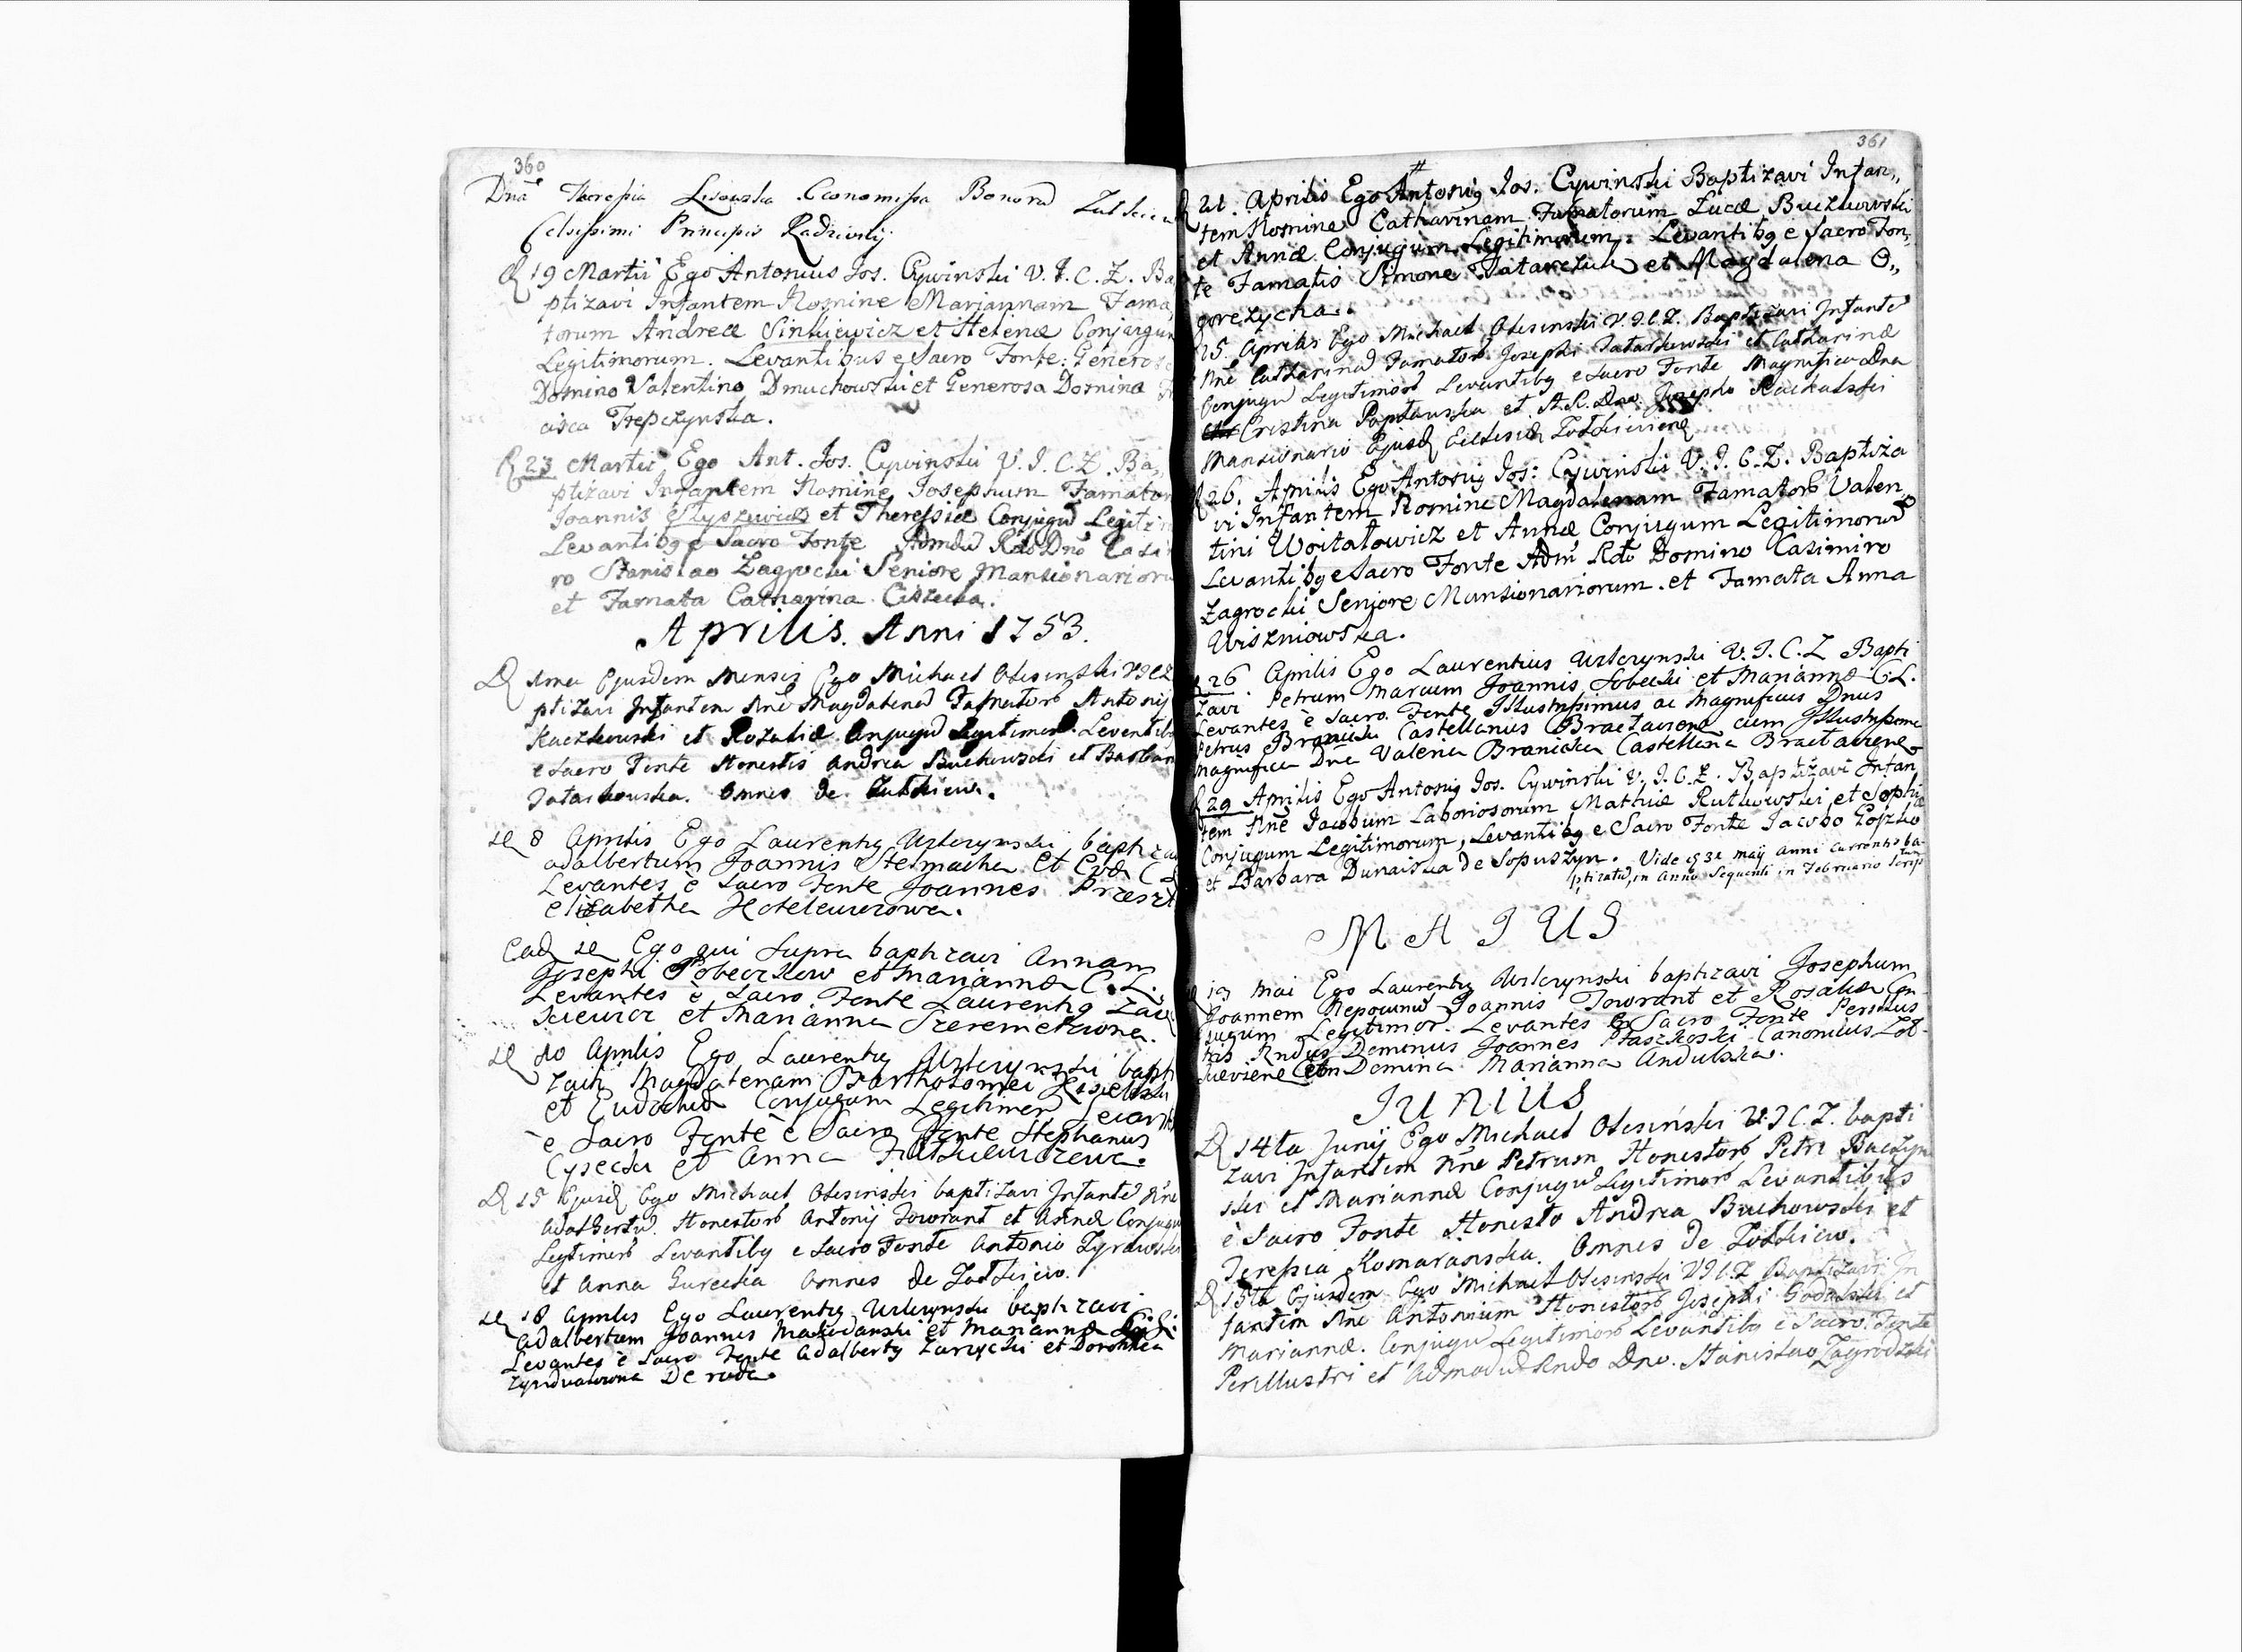 360
Dna Theresia Lisowska Economissa Bonorū
Celsissimi Principis Radziwilij
D 19 Martii Ego Antonius Jos. Cywinski V. J. C. Z. Ba
ptizavi Infantem Nomine Mariannam Fama
torum Andreæ Sinkiewicz et Helenæ Conjugum
Legitimorum. Levantibus e Sacro Fonte: Generoso
Domino Valentino Dmuchowski et Generosa Domina
cisca Trepczynska.
D 23 Martii Ego Ant. Jos. Cywinski V. J. C. Z. Ba,,
ptizavi Infantem Nomine Josephum Famator
Joannis Slyszewicz et Theressiæ Conjugū Legiti
Levantibg e Sacro Fonte Admdū Rdo Dno Casi
ro Stanislao Zagrocki Seniore Mansionarioru
et Famata Catharina
Aprilis. Anni 1753.
D 1ma Ejusdem Mensis Ego Michael Olesinski VJCZ
ptizavi Infantem Nne Magdalenā Famatorū Antonij
Kaczkowski et Rozaliæ Conjugū Legitimorū. Levantib
e Sacro Fonte Honestis Andrea Buchowski et Barbar
Tatarkowska. Omnes de Zolkiew.
D 8 Aprilis Ego Laurentig Uszczynski baptizav
Adalbertum Joannis Stelmacha et Evæ C
Levantes è Sacro Fonte Joannes
Elizabetha
Eadē Ego qui supra baptizavi Annam
Josephi et Mariannæ C. L.
Levantes è Sacro Fonte Laurentig
et Marianna Szeremetowna.
D 10 Aprilis Ego Laurentig Uszczynski bapti
zavi Magdalenam Bartholomei
et Eudochiæ Conjugum Legitimorū Levant
è Sacro Fonte è Sacro Fonte Stephanus
Cysecki et Anna
D 15 Ejusdē Ego Michael Olesinski baptizavi Infantē Nne
Adalbertū Honestorū Antonij Towrant et Annæ Conjugū
Legitimorū Levantibg e Sacro Fonte Antonio Zyrawski
et Anna Gurecka Omnes de Zolkiew.
D 18 Aprilis Ego Laurentig Uszczynski baptizavi
Adalbertum Joannis et Mariannæ
Levantes è Sacro Fonte Adalbertg Zarycki et Dorothea
De ruda.
361
D 21. Aprilis Ego Antonig Jos. Cywinski Baptizavi Infan,,
tem Nomine Catharinam Famatorum Lucæ Buczkowski
et Annæ Conjugum Legitimorum: Levantibg e Sacro Fon,,
te Famatis Simone Tatarczuk et Magdalena O,,
gorezycha.
25. Aprilis Ego Michael Olesinski V.J.C.Z. Baptizavi Infantē
Nne Catharinā Famatorū Josephi Tatarkowski et Catharinæ
Conjugū Legitimorū Levantibg e Sacro Fonte Magnifica Dna
Cristina et A.R. Dno Josepho
Mansionario Ejusdē Eclesiæ Zolkieviensē
D 26. Aprilis Ego Antonig Jos: Cywinski V. J. C. Z. Baptiza
vi Infantem Nomine Magdalenam Famatorū Valen,,
tini Woitalowicz et Annæ Conjugum Legitimorum
Levantibg e Sacro Fonte Adm Rdo Domino Casimiro
Zagrocki Seniore Mansionariorum et Famata Anna
Wiszniowska.
D 26 Aprilis Ego Laurentius Uszczynski V. J. C. Z Bapti
zavi Petrum Marcum Joannis Sobecki et Mariannæ C L.
Levantes è Sacro Fonte Illustrissimus ac Magnificus Dnus
Petrus Branicki Castellanus Braclaviensis cum Illustrissima
Magnifica Dna Valeria Branicka Castellana
D 29 Aprilis Ego Antonig Jos. Cywinski V. J. C. Z. Baptizavi Infan
tem Nne Jacobum Laboriosorum Mathiæ Rutkowski et Sophiæ
Conjugum Legitimorum, Levantibg e Sacro Fonte Jacobo
et Barbara Dunaiska de Sopuszyn. Vide 31 maij anni currentis ba
ptizatū, in Anno Sequenti in Februario Script
MAJUS
13 Mai Ego Laurentig Uszczynski baptizavi Josephum
Joannem Nepomunū Joannis Towrant et Rosaliæ Con
jugum Legitimor. Levantes e Sacro Fonte Perillus
tris Rndus Dominus Joannes Ptaszkoski Canonicus Zol
Domina Marianna Andulska.
JUNIUS
D 14ta Junij Ego Michael Olesinski V J C. Z. bapti
zavi Infantem Nne Petrum Honestorū Petri Baczyn
ski et Mariannæ Conjugū Legitimorū Levantibus
è Sacro Fonte Honesto Andrea Buchowski et
Teressia Komaranska. Omnes de Zolkiew.
D 15ta Ejusdem Ego Michael Olesinski VJCZ Baptizavi In
fantem Nne Antonium Honestorū Josephi Godulski et
Mariannæ. Conjugū Legitimorū Levantibg è Sacro Fonte
Perillustri et Admodū Rndo Dno. Stanislao Zagrodzki